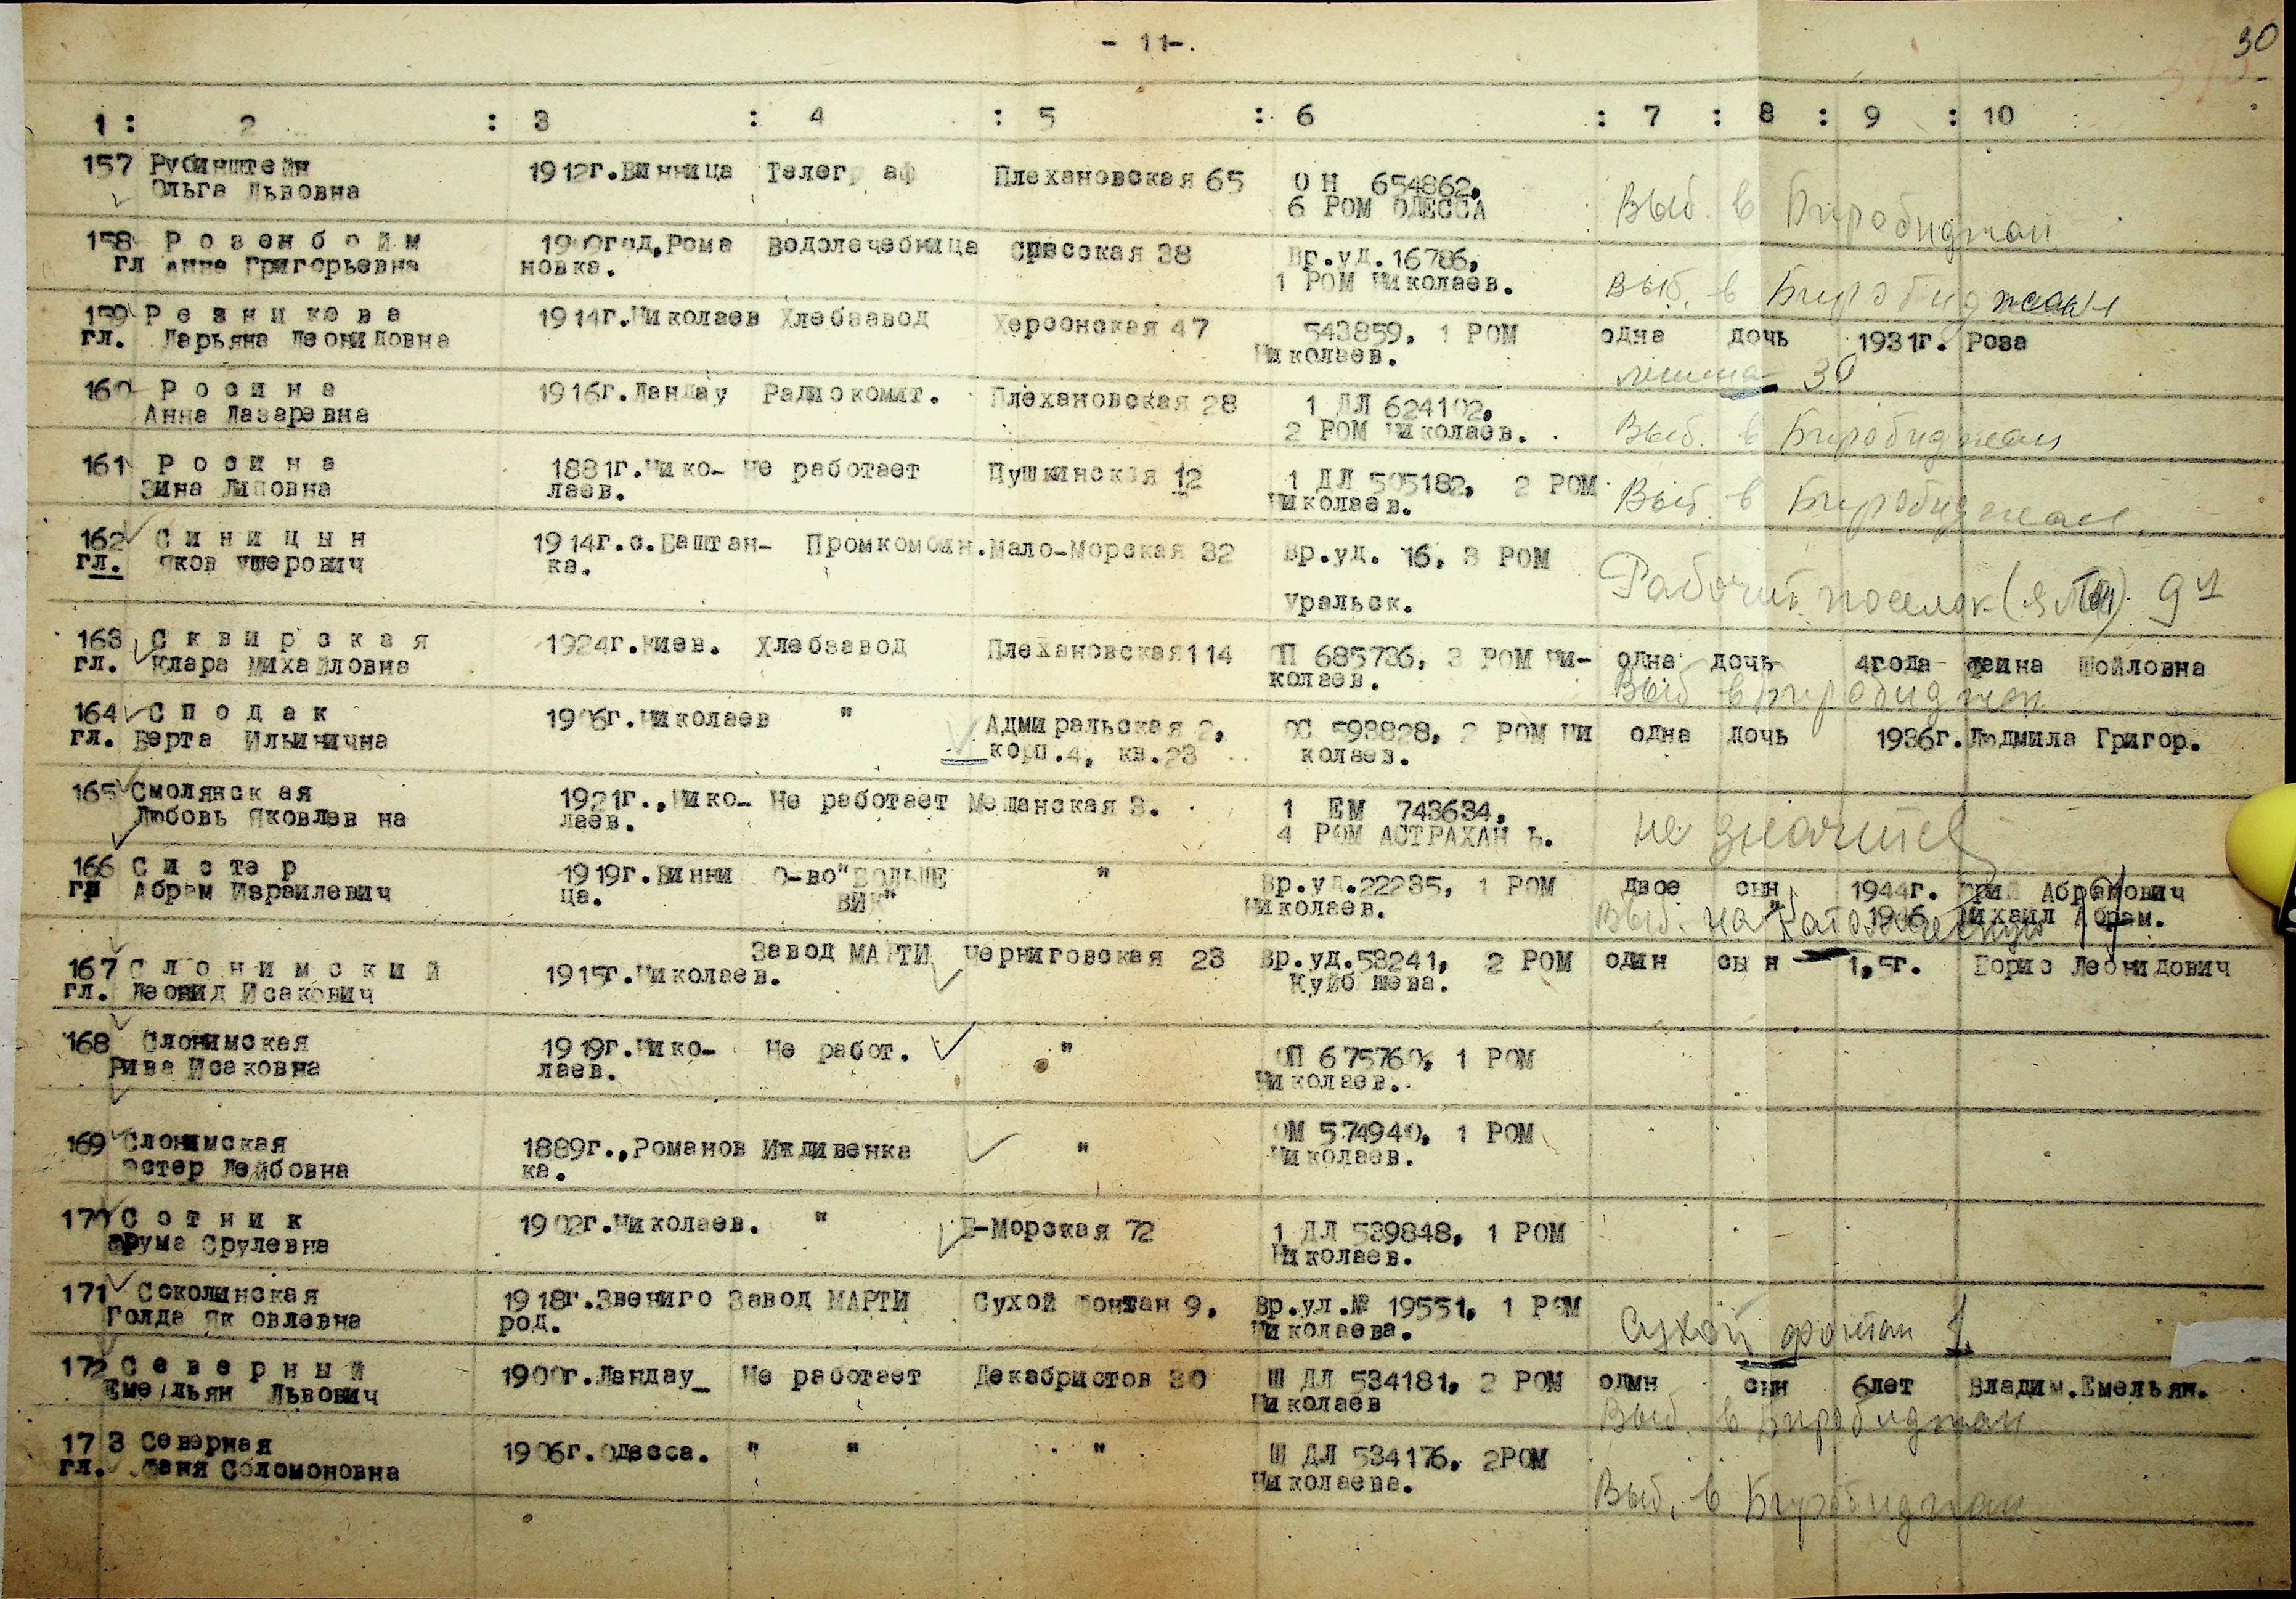 - 11-.
30
1 : 2 : 3 : 4 : 5 : 6 : 7 : 8 : 9 : 10
157 Рубинштейн 1912г.Винница Телеграф Плехановская 65 ОН 654862,
Ольга Львовна 6 РОМ ОДЕССА Выб. в Биробиджан
158 Розенбойм 1900год,Рома Водолечебница Спасская 38 Вр.уд.16786,
гл Анна Григорьевна новка. 1 РОМ Николаев. Выб. в Биробиджан
159 Резникова 1914г.Николаев Хлебзавод Херсонская 47 543859, 1 РОМ одна дочь 1931г. Роза
гл. Марьяна Леонидовна Николаев.
30
160 Росина 1916г.Ландау Радиокомит. Плехановская 28 1 ДЛ 624102,
Анна Лазаревна 2 РОМ Николаев. Выб. в Биробиджан
161 Росина 1881г.Нико- Не работает Пушкинская 12 1 ДЛ 505182, 2 РОМ
Зина Липовна лаев. Николаев. Выб. в Биробиджан
162 Синицын 1914г.с.Баштан- Промкомбин. Мало-Морская 32 Вр.уд. 16, 3 РОМ
гл. Яков Ушерович ка. Уральск. Рабочий поселок
163 Сквирская 1924г.Киев. Хлебзавод Плехановская114 ОП 685736, 3 РОМ Ни- одна дочь 4года Фаина Шойловна
гл. Клара Михайловна колаев. Выб в Биробиджан
164 Сподак 1906г.Николаев " Адмиральская 2, ОС 593828, 2 РОМ Ни одна дочь 1936г. Людмила Григор.
гл. Берта Ильинична корп.4, кв.23 колаев.
165 Смолянская 1921г.,Нико- Не работает Мещанская 3. 1 ЕМ 743634,
Любовь Яковлевна лаев. 4 РОМ АСТРАХАНЬ. не значится
166 Систер 1919г.Винни О-во"БОЛЬШЕ " Вр.уд.22235, 1 РОМ двое сын 1944г. Абрамович
гл Абрам Израилевич ца. ВИК" Николаев. " 1946 Михаил Абрам.
Выб. на
167 Слонимский 1915г.Николаев. Завод МАРТИ Черниговская 23 Вр.уд.53241, 2 РОМ один сын 1,5г. Борис Леонидович
гл. Леонид Исакович Куйбышева.
168 Слонимская 1919г.Нико- Не работ. " ОП 675760, 1 РОМ
Рива Исаковна лаев. Николаев.
169 Слонимская 1889г.,Романов Иждивенка " ОМ 574940, 1 РОМ
Эстер Лейбовна ка. Николаев.
170 Сотник 1902г.Николаев. " Б-Морская 72 1 ДЛ 539848, 1 РОМ
Фрума Срулевна Николаев.
171 Соколинская 1918г.Звениго Завод МАРТИ Сухой Фонтан 9, Вр.уд.№ 19551, 1 РОМ
Голда Яковлевна род. Николаева. Сухой фонтан 1
172 Северный 1900г.Ландау_ Не работает Декабристов 30 Ш ДЛ 534181, 2 РОМ один сын 6лет Владим.Емельян.
Емельян Львович Николаев Выб. в Биробиджан
173 Северная 1906г.Одесса. " " " Ш ДЛ 534176, 2РОМ
гл. Фаня Соломоновна Николаева. Выб. в Биробиджан